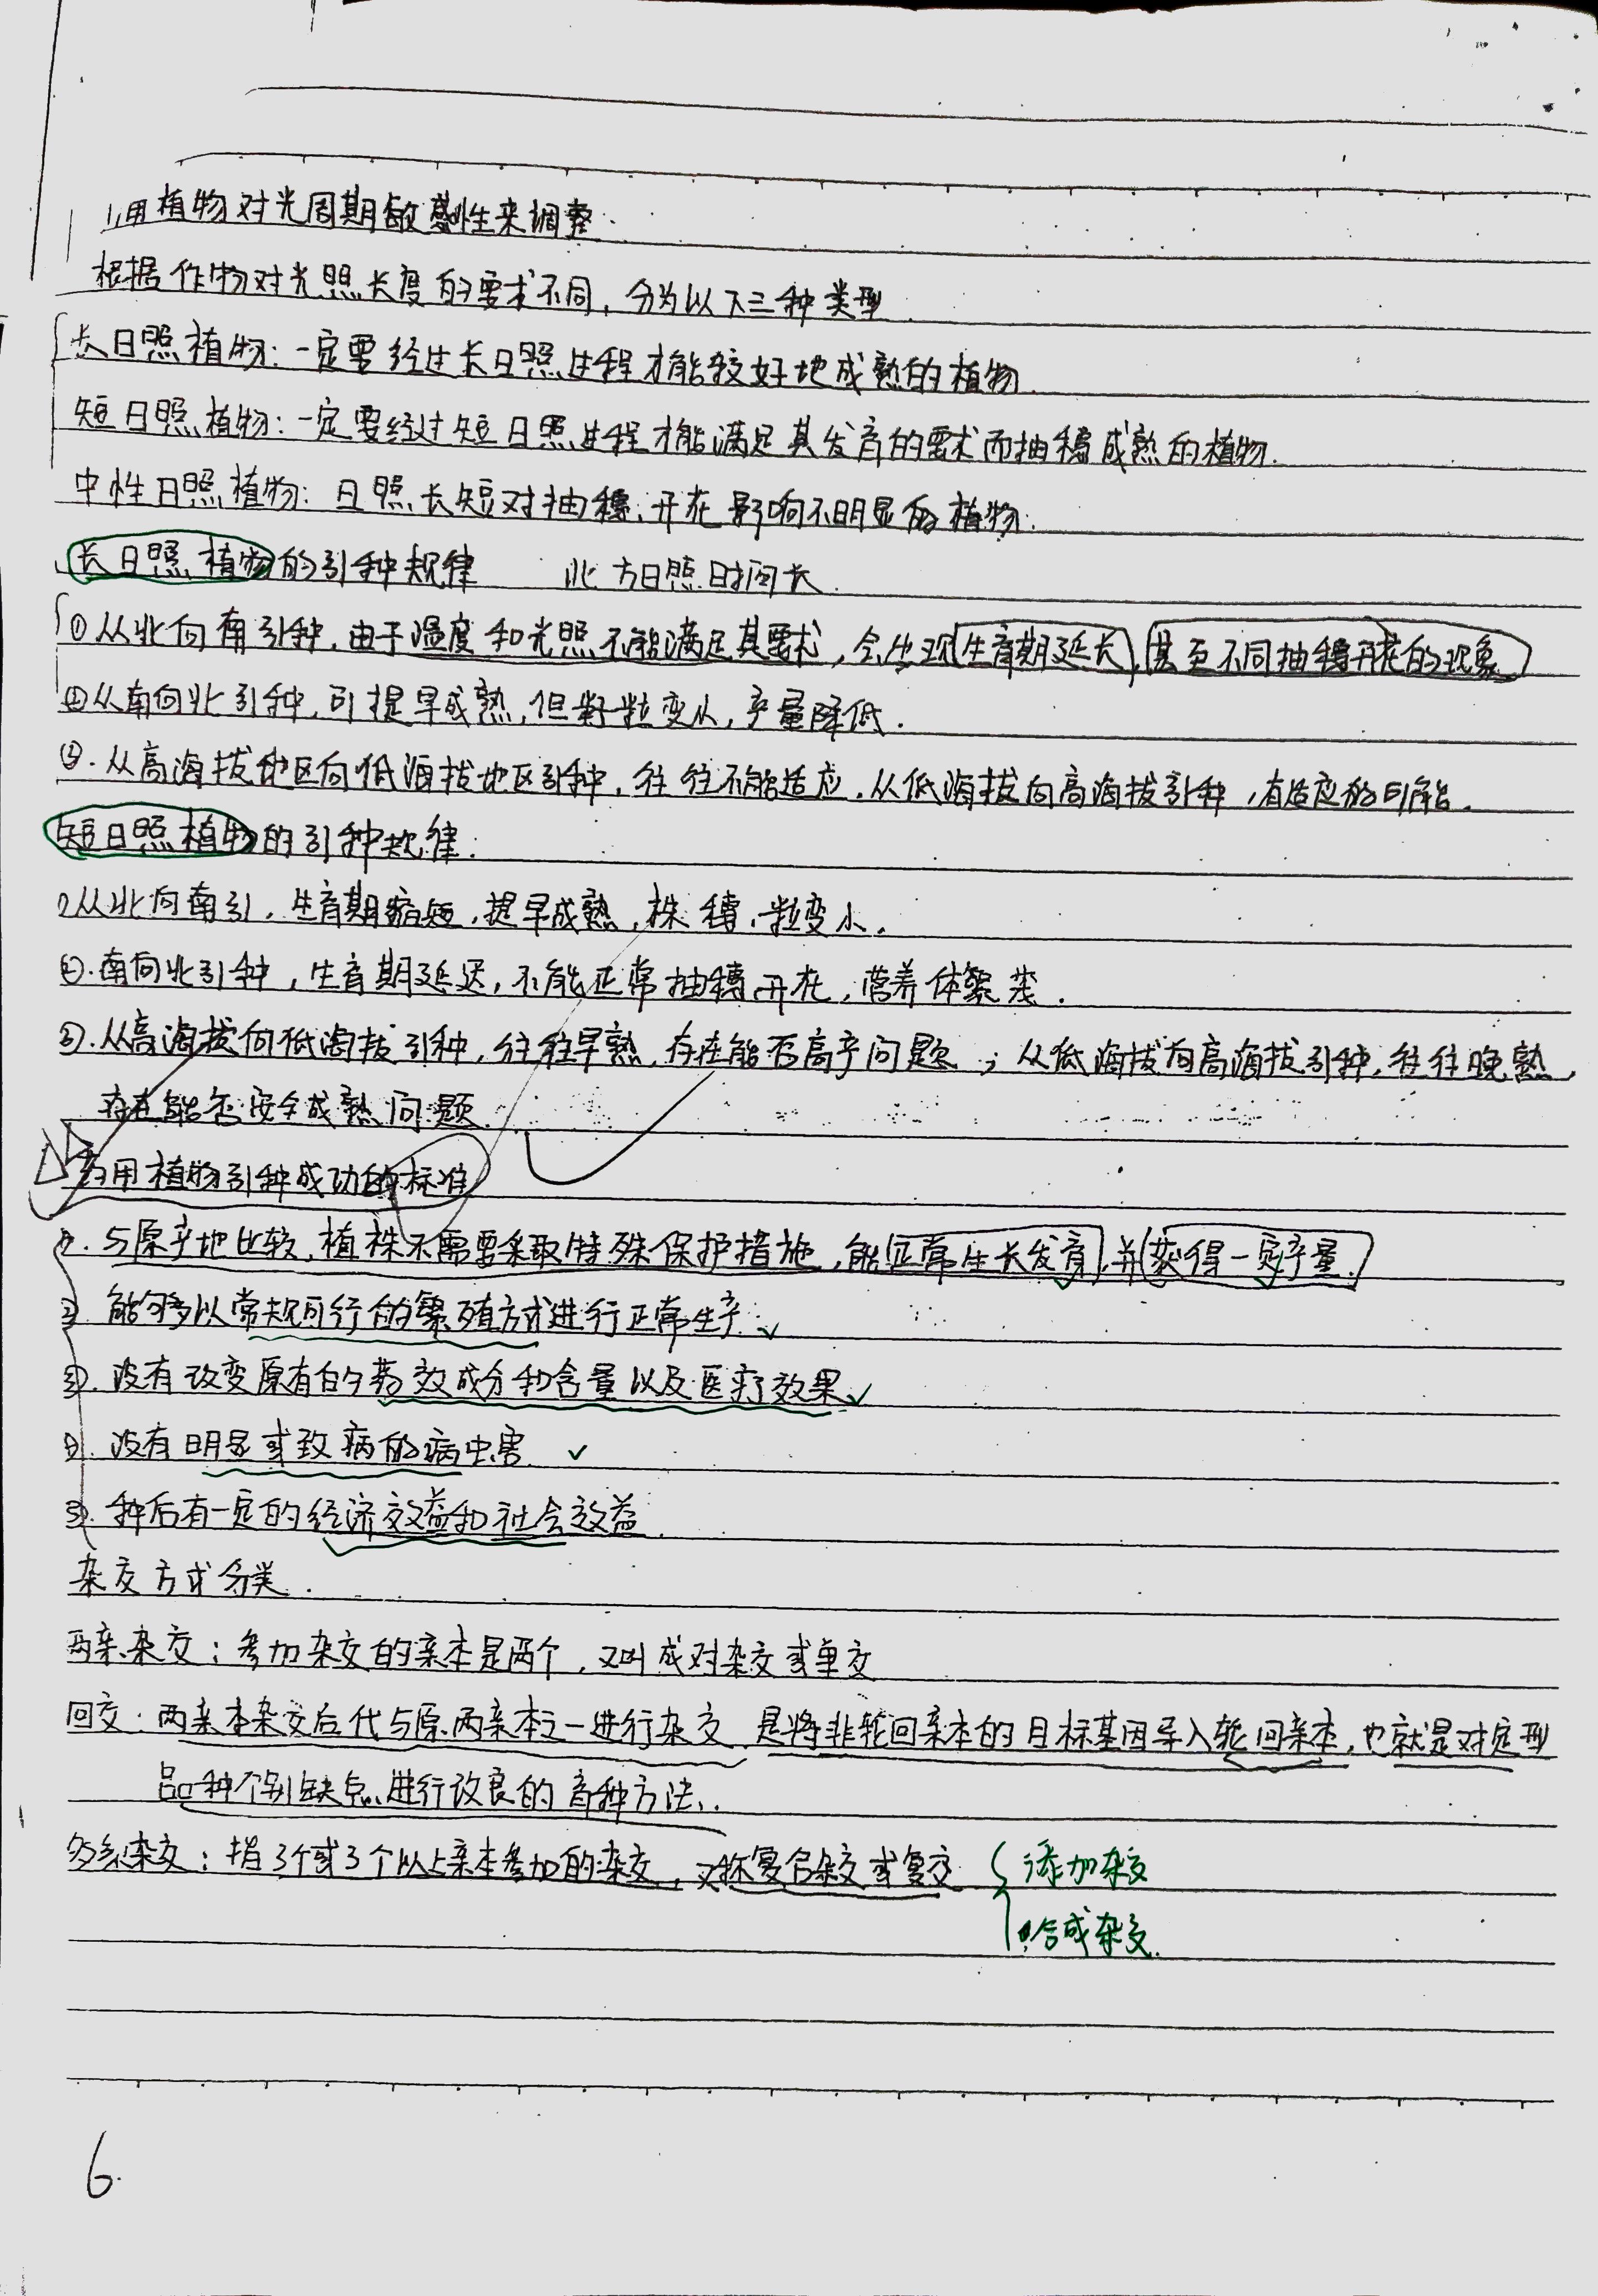 用植物对光周期敏感性来调整.
根据作物对光照长度的要求不同，分为以下三种类型.
长日照植物：一定要经过长日照过程才能较好地成熟的植物.
短日照植物：一定要经过短日照过程才能满足其发育的要求而抽穗成熟的植物.
中性日照植物：日照长短对抽穗、开花影响不明显的植物.
长日照植物的引种规律 北方日照时间长.
①从北向南引种，由于温度和光照不能满足其要求，会出现生育期延长，甚至不同抽穗开花的现象
②从南向北引种，可提早成熟，但籽粒变小，产量降低.
③.从高海拔地区向低海拔地区引种，往往不能适应.从低海拔向高海拔引种，有适应的可能.
短日照植物的引种规律.
从北向南引，生育期缩短，提早成熟，株、穗、粒变小.
②.南向北引种，生育期延迟，不能正常抽穗开花，营养体繁茂.
③.从高海拔向低海拔引种，往往早熟，存在能否高产问题；从低海拔向高海拔引种，往往晚熟，
存在能否安全成熟问题.
药用植物引种成功的标准
①.与原产地比较，植株不需要采取特殊保护措施，能正常生长发育，并获得一定产量.
②.能够以常规可行的繁殖方式进行正常生产.
③.没有改变原有的药效成分和含量以及医疗效果
④.没有明显或致病的病虫害
⑤.种后有一定的经济效益和社会效益.
杂交方式分类.
两亲杂交：参加杂交的亲本是两个，又叫成对杂交或单交
回交：两亲本杂交后代与原两亲本之一进行杂交.是将非轮回亲本的目标基因导入轮回亲本，也就是对定型
品种个别缺点进行改良的育种方法.
多系杂交：指3个或3个以上亲本参加的杂交，又称复合杂交或复交 添加杂交
合成杂交.
6.